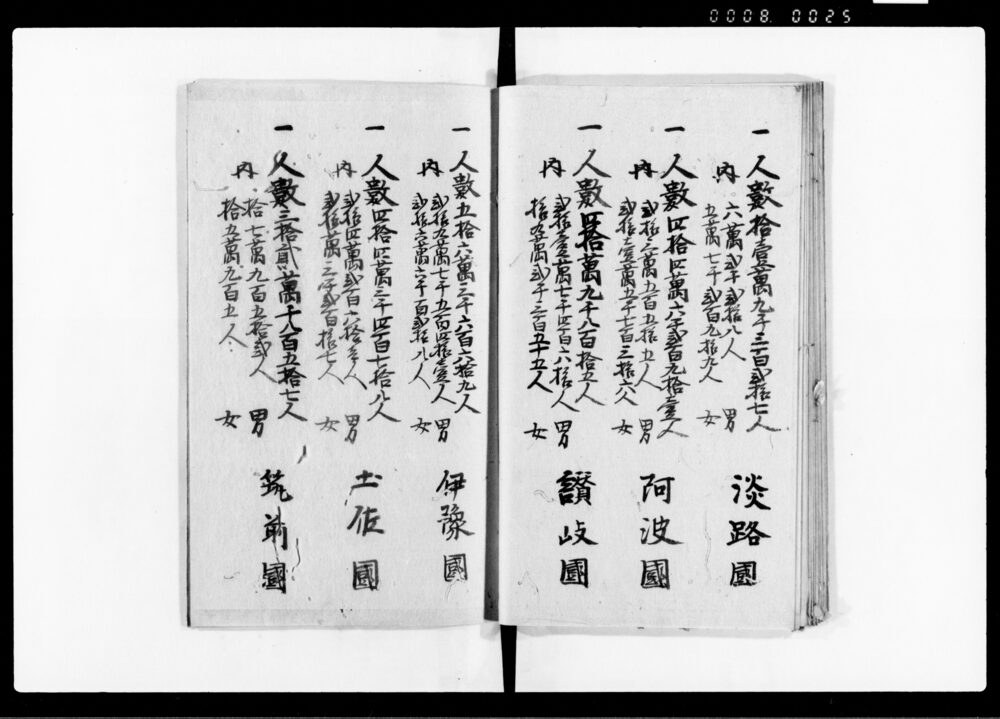 0008 0025
一人數拾壹萬九千三百弐拾七人 淡路國
内 六萬弐千弐拾八人 男
五萬七千弐百九拾九人 女
一人數四拾四萬六千弐百九拾壹人 阿波國
内 弐拾三萬五百五拾五人 男
弐拾壹萬五千七百三拾六人 女
一人數四拾萬九千八百拾五人 讃岐國
内 弐拾壹萬七千四百六拾人 男
拾九萬弐千三百五十五人 女
一人數五拾六萬三千六百六拾九人 伊豫國
内 弐拾九萬七千五百四拾壹人 男
弐拾六萬六千百弐拾八人 女
一人數四拾四萬三千四百七拾八人 土佐國
内 弐拾四萬弐百六拾壱人 男
弐拾萬三千弐百拾七人 女
一人數三拾貳萬千八百五拾七人 筑前國
内 拾七萬九百五拾弐人 男
拾五萬九百五人 女